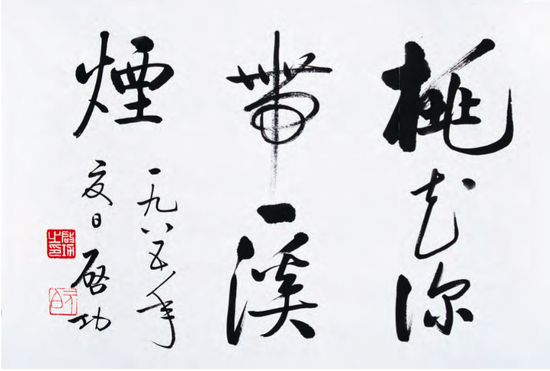 桃花深
帶一溪
煙
一九八五年
夏日 启功